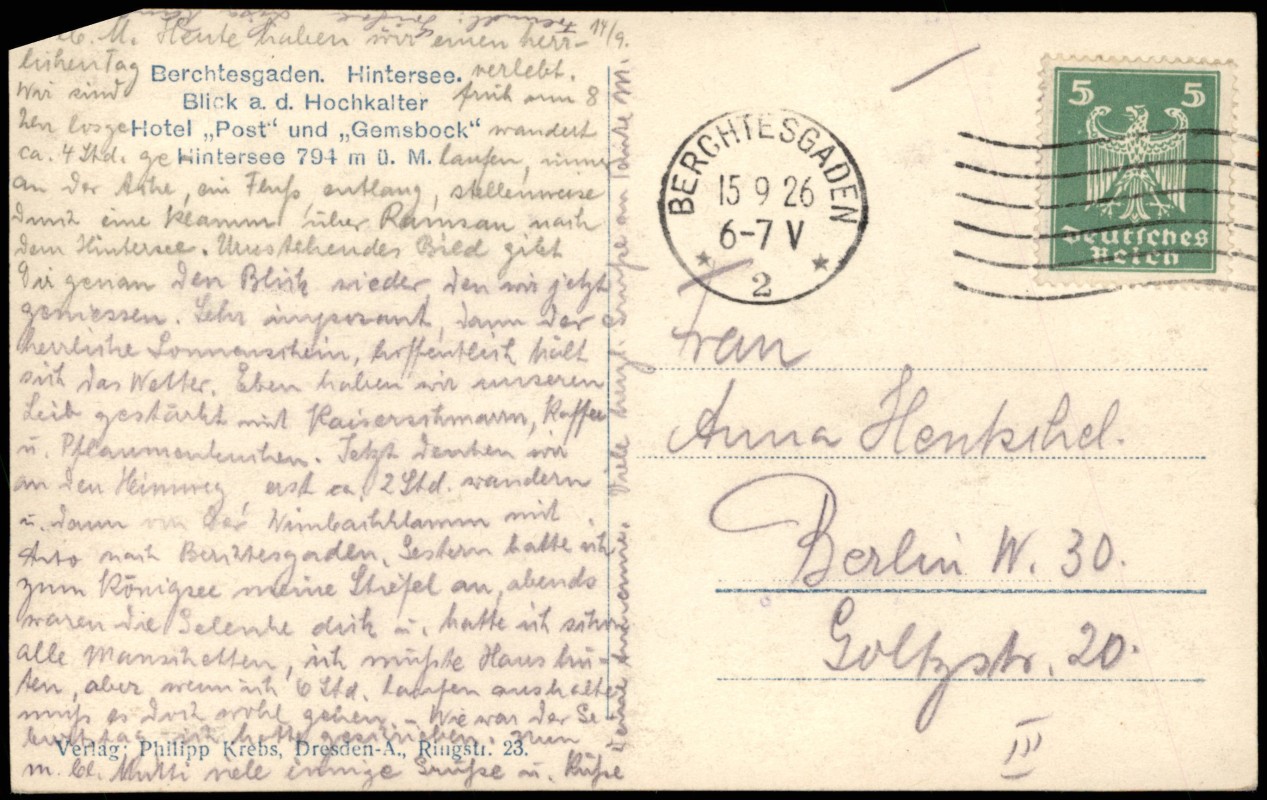 14/9.
M. Heute haben wir einen herr-
lichen Tag verlebt.
Wir sind früh um 8
Uhr losge wandert
ca. 4 Std. ge laufen, immer
an der Ache, ein Fluß, entlang, stellenweise
durch eine Klamm über Ramsau nach
dem Hintersee. Umstehendes Bild gibt
Dir genau den Blick wieder, den wir jetzt
geniessen. Sehr imposant, dann der
herrliche Sonnenschein, hoffentlich hält
sich das Wetter. Eben haben wir unseren
Leib gestärkt mit Kaiserschmarrn, Kaffee
u. Pflaumenkuchen. Jetzt denken wir
an den Heimweg, erst ca. 2 Std. wandern
u. dann von der Wimbachklamm mit
Auto nach Berchtesgaden. Gestern hatte ich
zum Königsee meine Stiefel an, abends
waren die Gelenke dick u. hatte ich schon
alle Manschetten, ich müßte Haus hü-
ten, aber wenn ich 6 Std. laufen aushalte
muß es doch wohl gehen. - Wie war der Ge-
burtstag, ich hatte geschrieben. Nun
m. lb. Mutti viele innige Grüße u. Küße
Viele herzl. Grüße an
Berchtesgaden. Hintersee.
Blick a. d. Hochkalter
Hotel „Post" und „Gemsbock"
Hintersee 794 m ü. M.
Verlag: Philipp Krebs, Dresden-A., Ringstr. 23.
BERCHTESGADEN
15 9 26
6-7 V
2
5 5
Deutsches
Reich
Frau
Anna Henkschel.
Berlin W. 30.
Goltzstr. 20.
III